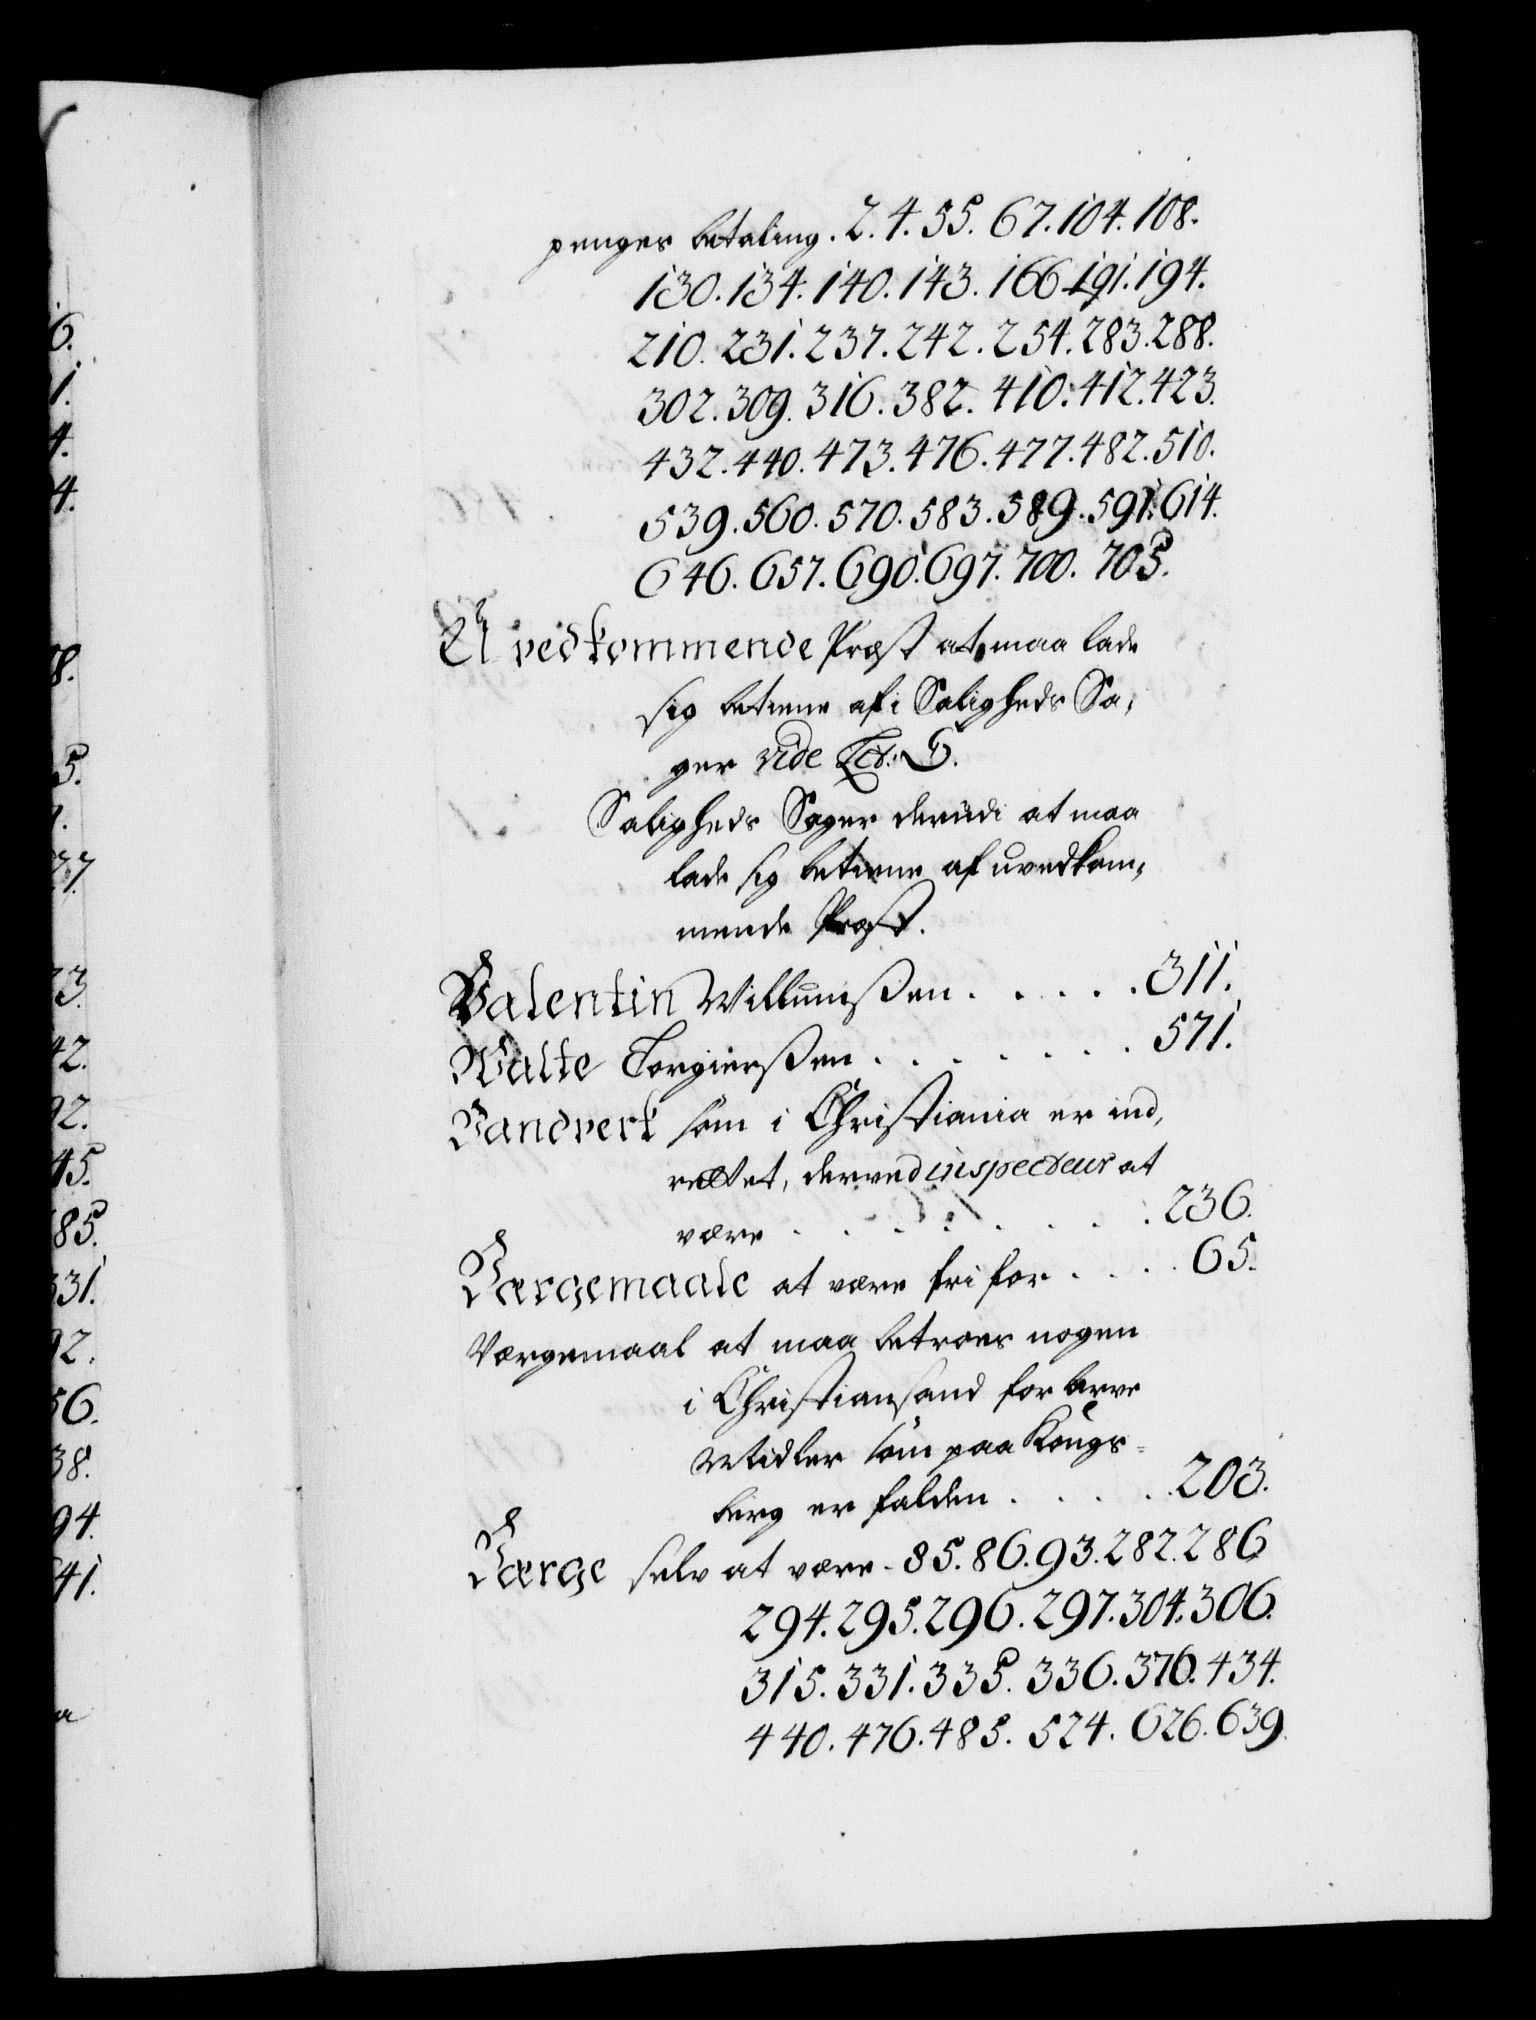 penges betaling. 2. 4. 55. 67. 104. 108.
130. 134. 140. 143. 166. 191. 194.
210. 231. 237. 242. 254. 283. 288.
302. 309. 316. 382. 410. 412. 423.
432. 440. 473. 476. 477. 482. 510.
539. 560. 570. 583. 589. 591. 614.
646. 657. 690. 697. 700. 705.
Uvedkommende Præst at maa lade
sig betiene af i Saligheds Sa,
ger vide Lit. S.
Saligheds Sager derudi at maa
lade sig betiene af uvedkom,
mende Præst.
Valentin Willumsßen . . . . . 311.
Walte Torgiersßen . . . . . . . 571.
Vandverk som i Christiania er ind,
rettet, derved inspecteur at
være . . . . . . . . 236.
Værgemaale at være fri for . . . . 65.
Værgemaal at maa betroes nogen
i Christiansand for arve
Midler som paa Kongs-
berg er falden . . . . 203.
Værge selv at være. 85. 86. 93. 282. 286
294. 295. 296. 297. 304. 306.
315. 331. 335. 336. 376. 434.
440. 476. 485. 524. 626. 639.